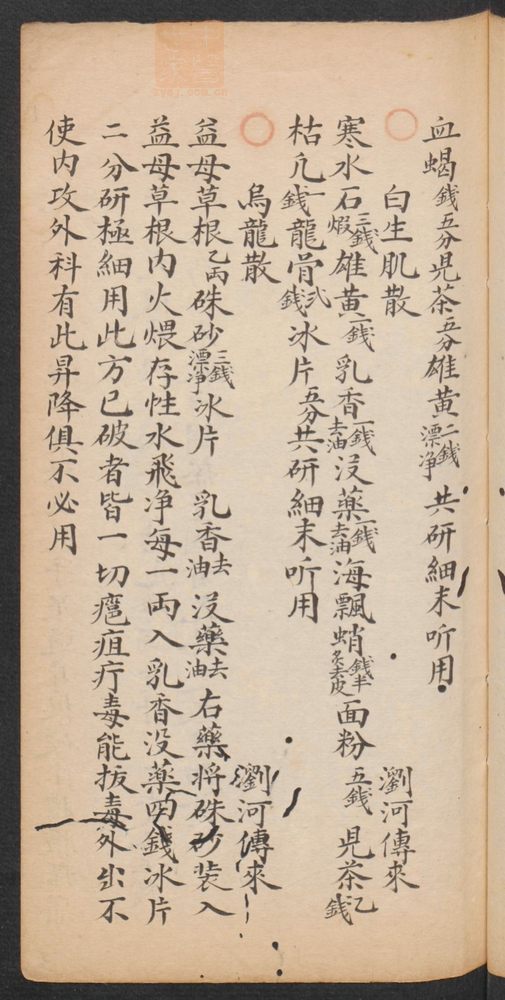 血蝎五分錢 児茶五分 雄黃二錢漂净 共研細末听用
〇 白生肌散 瀏河傳來
寒水石三錢煅 雄黃一錢 乳香一錢去油 沒藥一錢去油 海飄蛸錢半炙去皮 面粉五錢 児茶乙錢
枯凡一錢 龍骨弍錢 冰片五分 共研細末听用
〇 烏龍散 瀏河傳來
益母草根乙两 硃砂三錢漂净 冰片 乳香去油 沒藥去油 右藥將硃砂装入
益母草根内火煨存性水飛净每一両入乳香没藥四錢冰片
二分研極細用此方已破者皆一切癰疽疔毒能拔毒外出不
使内攻外科有此昇降俱不必用